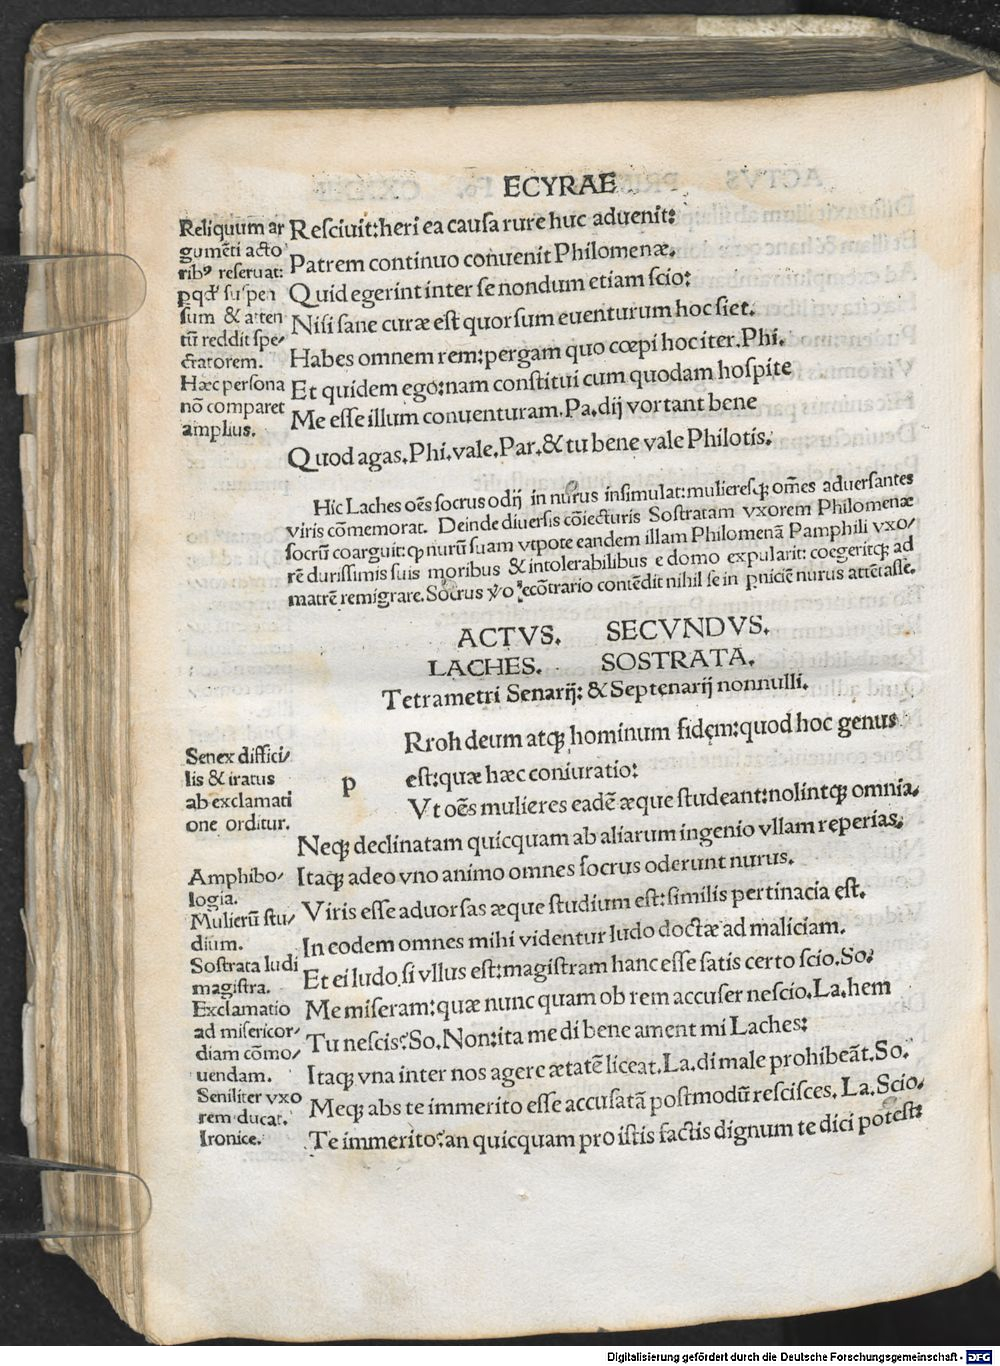 ECYRAE
Resciuit:heri ea causa rure huc aduenit:
Patrem continuo conuenit Philomenæ.
Quid egerint inter se nondum etiam scio:
Nisi sane curæ est quorsum euenturum hoc siet.
Habes omnem rem:pergam quo cœpi hoc iter.Phi.
Et quidem ego:nam constitui cum quodam hospite
Me esse illum conuenturam.Pa.dij vortant bene
Quod agas.Phi.vale.Par.& tu bene vale Philotis.
Reliquum ar
gumēti acto
ribꝰ reseruat:
ꝑqđ suspen
sum & atten
tū reddit spe/
ctatorem.
Hæc persona
nō comparet
amplius.
Hic Laches oēs socrus odij in nurus insimulat:mulieresqꝫ om̄es aduersantes
viris cōmemorat. Deinde diuersis cōiecturis Sostratam vxorem Philomenæ
socrū coarguit:ꝙ nurū suam vtpote eandem illam Philomenā Pamphili vxo/
rē durissimis suis moribus & intolerabilibus e domo expularit: coegeritqꝫ ad
matrē remigrare.Socrus ṽo ecōtrario contēdit nihil se in ꝑniciē nurus attētasse.
ACTVS. SECVNDVS.
LACHES. SOSTRATA.
Tetrametri Senarij: & Septenarij nonnulli.
p
Rroh deum atqꝫ hominum fidem:quod hoc genus
est:quæ hæc coniuratio:
Vt oēs mulieres eadē æque studeant:nolintqꝫ omnia.
Neqꝫ declinatam quicquam ab aliarum ingenio vllam reperias.
Itaqꝫ adeo vno animo omnes socrus oderunt nurus.
Viris esse aduorsas æque studium est:similis pertinacia est.
In eodem omnes mihi videntur ludo doctæ ad maliciam.
Et ei ludo si vllus est:magistram hanc esse satis certo scio.So.
Me miseram:quæ nunc quam ob rem accuser nescio.La.hem
Tu nescis?So.Non:ita me di bene ament mi Laches:
Itaqꝫ vna inter nos agere ætatē liceat.La.di male prohibeāt.So.
Meqꝫ abs te immerito esse accusatā postmodū rescisces.La.Scio.
Te immerito?an quicquam pro istis factis dignum te dici potest:
Senex diffici/
lis & iratus
ab exclamati
one orditur.
Amphibo/
logia.
Mulierū stu/
dium.
Sostrata ludi
magistra.
Exclamatio
ad misericor/
diam cōmo/
uendam.
Seniliter vxo
rem ducat.
Ironice.
Digitalisierung gefördert durch die Deutsche Forschungsgemeinschaft - DFG